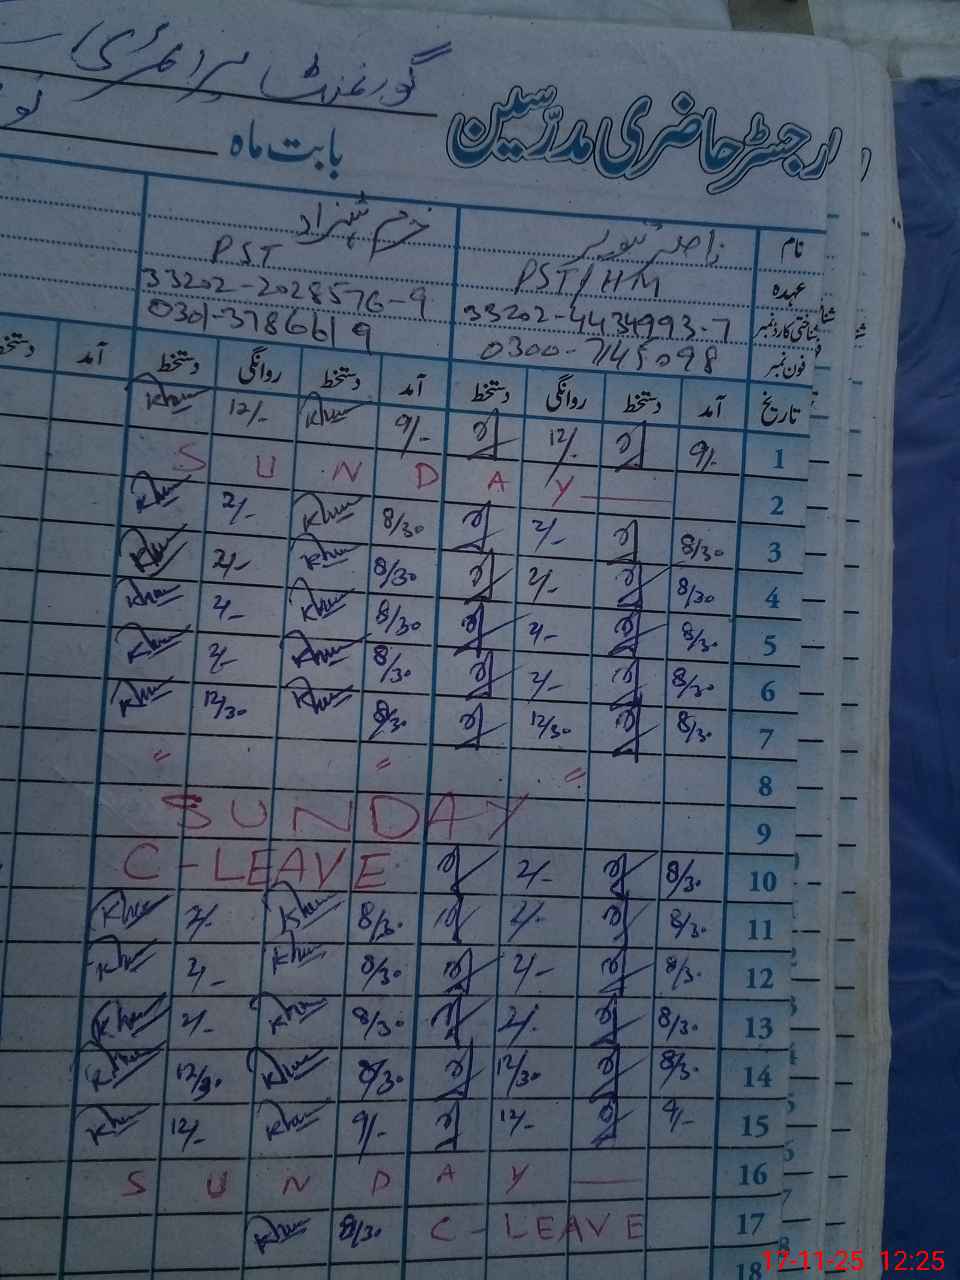 گورنمنٹ پرائمری
رجسٹر حاضری مدرسین
بابت ماہ
نام
خرم شہزاد
عہدہ PST/HM PST
شناختی کارڈ نمبر 33202-4434993-7 33202-2028576-9
فون نمبر 0300-7145098 0301-3786619
تاریخ آمد دستخط روانگی دستخط آمد دستخط روانگی دستخط آمد دستخط
1 9/- 12/- 9/- Khan 12/- Khan
2 SUNDAY
3 8/30 2/- 8/30 Khan 2/- Khan
4 8/30 2/- 8/30 Khan 2/- Khan
5 8/30 2/- 8/30 Khan 2/- Khan
6 8/30 2/- 8/30 Khan 2/- Khan
7 8/30 12/30 8/30 Khan 12/30 Khan
8 " " "
9 SUNDAY
10 8/30 2/- C-LEAVE
11 8/30 2/- 8/30 Khan 2/- Khan
12 8/30 2/- 8/30 Khan 2/- Khan
13 8/30 2/- 8/30 Khan 2/- Khan
14 8/30 12/30 8/30 Khan 12/30 Khan
15 9/- 12/- 9/- Khan 12/- Khan
16 SUNDAY
17 C-LEAVE 8/30 Khan
18
17-11-25 12:25